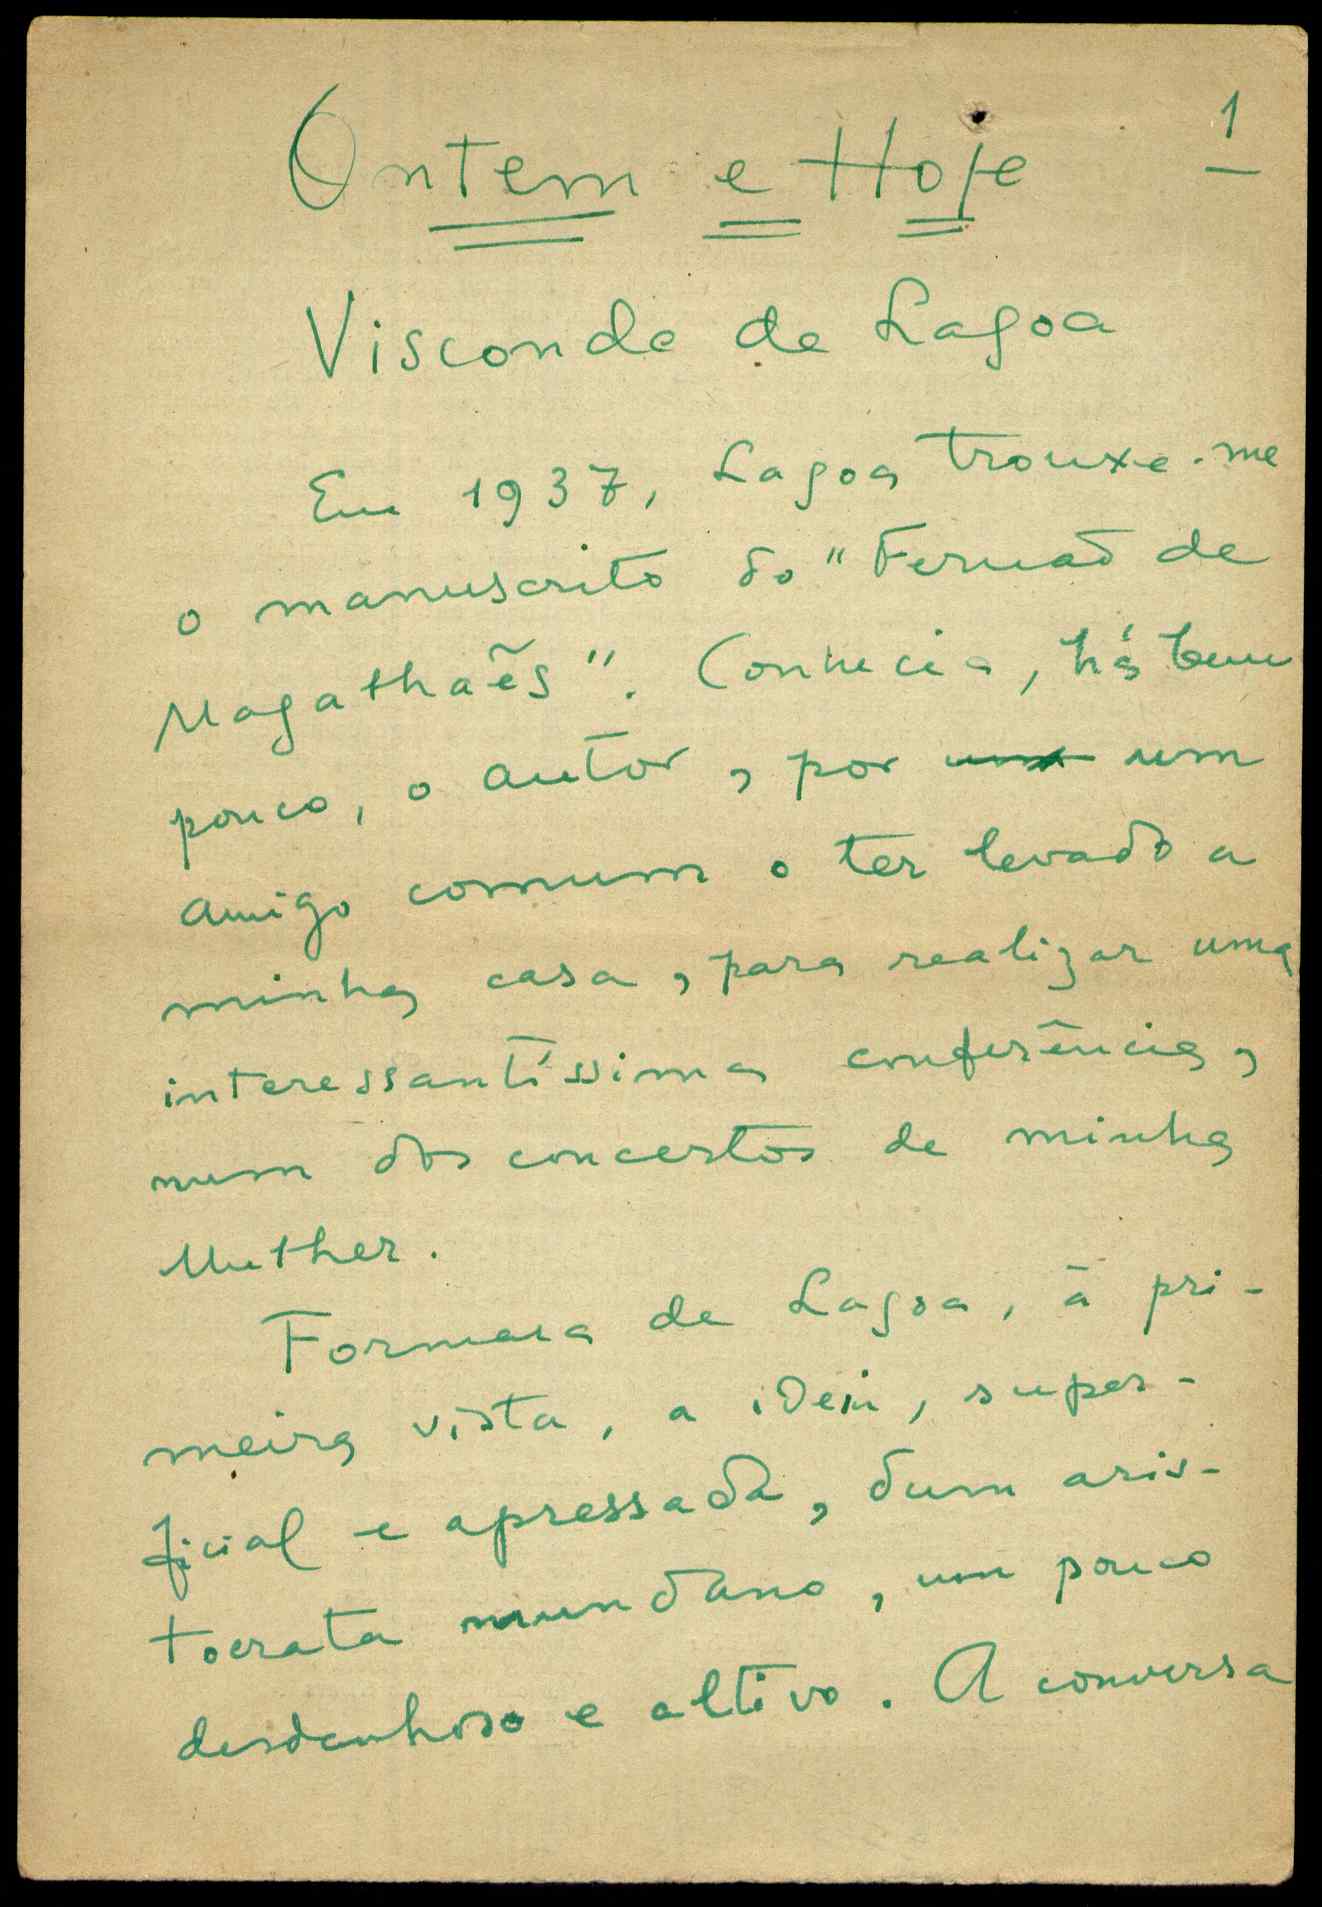 1
Ontem e Hoje
Visconde de Lagoa
Em 1937, Lagoa trouxe-me
o manuscrito do "Fernão de
Magalhães". Conhecia, há bem
pouco, o autor, por um
amigo comum o ter levado a
minha casa, para realizar uma
interessantíssima conferência,
num dos concertos de minha
Mulher.
Formara de Lagoa, à pri-
meira vista, a ideia, super-
ficial e apressada, dum aris-
tocrata mundano, um pouco
desdenhoso e altivo. A conversa